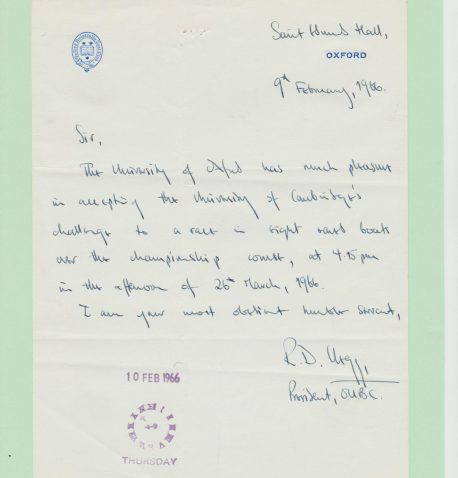 Saint Edmund Hall,
OXFORD
9th February, 1966.
Sir,
The University of Oxford has much pleasure
in accepting the University of Cambridge's
challenge to a race in eight oared boats
over the championship course, at 4.15 pm
in the afternoon of 26th March, 1966.
I am your most obedient humble servant,
R. D.
President, OUBC.
10 FEB 1966
THURSDAY